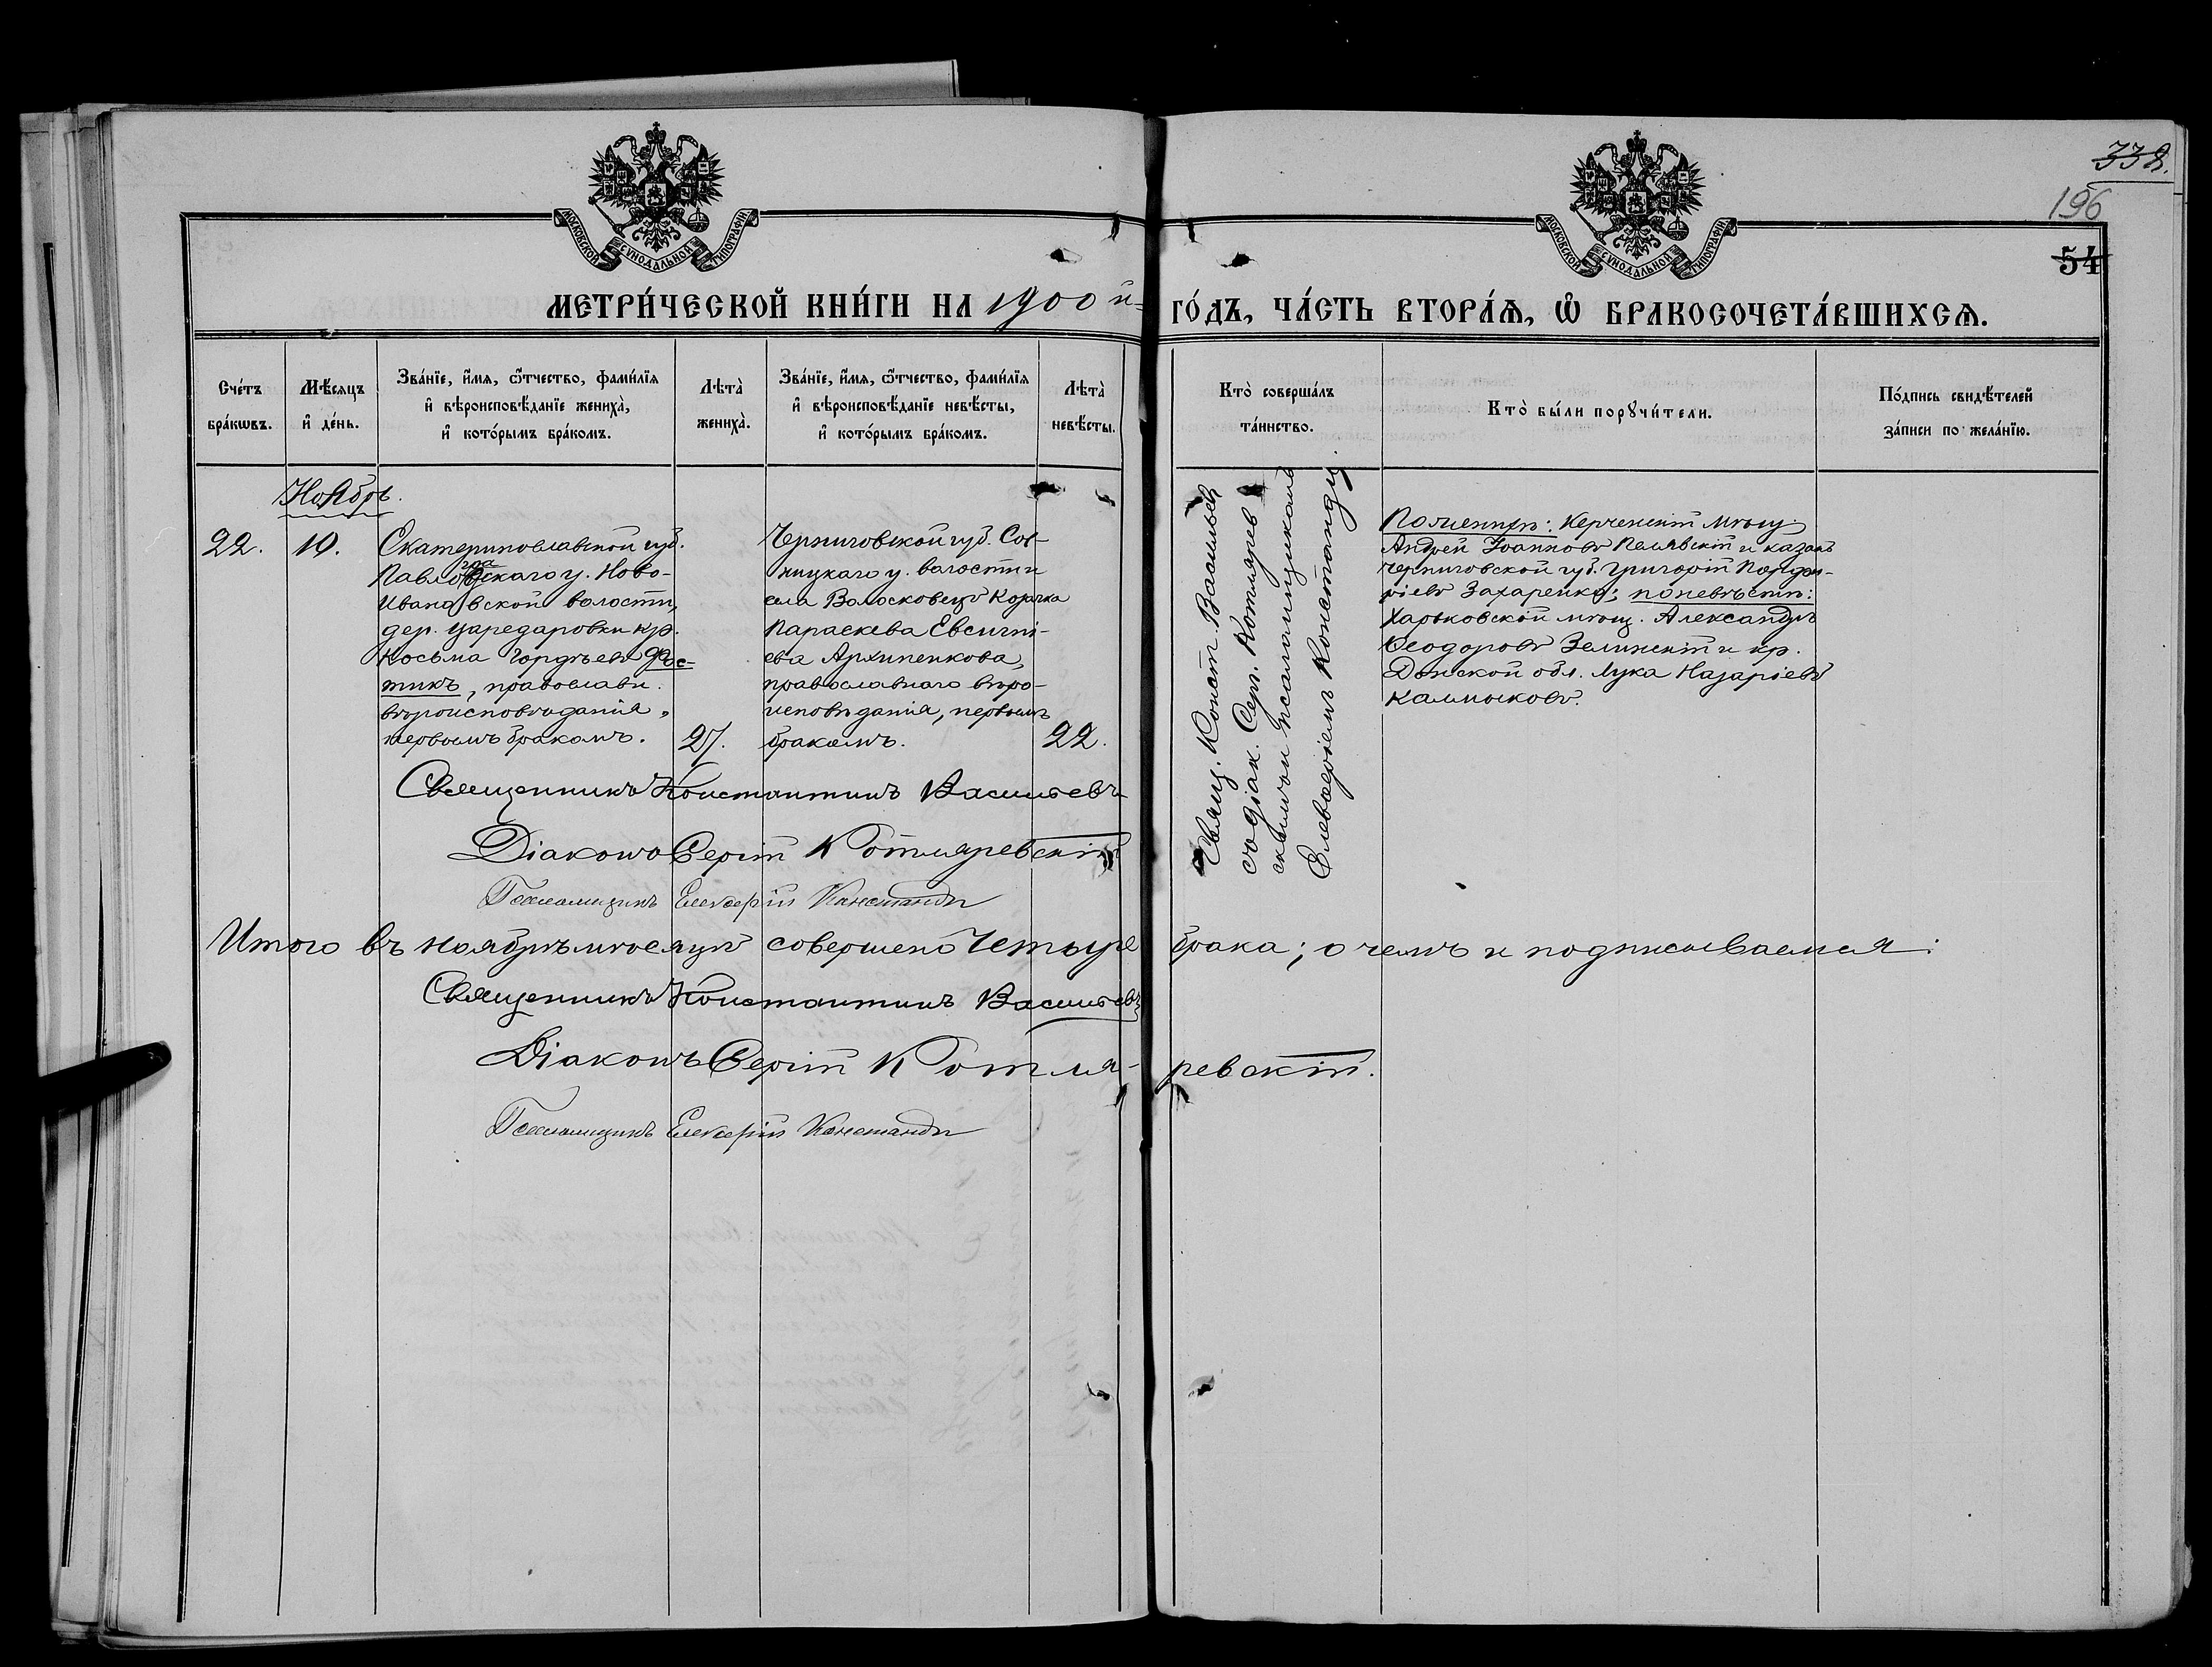 338.
196
54
МОСКОВСКОЙ СѴНОДАЛЬНОЙ ТИПОГРАФІИ
МОСКОВСКОЙ СѴНОДАЛЬНОЙ ТИПОГРАФІИ
МЕТРИ́ЧЕСКОЙ КНИ́ГИ НА 1900 й
ГО́ДЪ, ЧА́СТЬ ВТОРА́Ѧ, Ѿ БРАКОСОЧЕТА́ВШИХСѦ.
Сче́тъ
бра́кѡвъ.
Мѣ́сяцъ
и҆ де́нь.
Зва́нїе, и҆́мя, ѻ҆́тчество, фами́лїя
и҆ вѣроисповѣ́данїе жениха̀,
и҆ кото́рымъ бра́комъ.
Лѣта̀
жениха̀.
Зва́нїе, и҆́мя, ѻ҆́тчество, фами́лїя
и҆ вѣроисповѣ́данїе невѣ́сты,
и҆ кото́рымъ бра́комъ.
Лѣта̀
невѣ́сты.
Кто̀ соверша́лъ
та́инство.
Кто̀ бы́ли порꙋчи́тели.
По́дпись свидѣ́телей
за́писи по жела́нїю.
Ноябрь.
22.
10.
Екатеринославской губ.
Павлоградскаго у. Ново-
Ивановской волости,
дер. Царедаровки кр.
Косьма Гордѣевъ Фос-
тикъ, православн.
вѣроисповѣданія,
первымъ бракомъ.
27.
Черниговской губ. Сос-
ницкаго у. волости и
села Волосковецъ Козачка
Параскева Евсигні-
ева Архипенкова,
православнаго вѣро-
исповѣданія, первымъ
бракомъ.
22.
Свящ. Конст. Васильев
со діак. Серг. Котляров
скимъ и псаломщикомъ
Елевѳеріемъ Констанди
По женихѣ: Керченскій мѣщ.
Андрей Іоанновъ и казакъ
Черниговской губ. Григорій
Захаренко; по невѣстѣ:
Харьковской мѣщ. Александръ
Ѳеодоровъ Зелинскій и кр.
Донской обл. Лука Назаріевъ
Калмыковъ.
Священникъ Константинъ Васильевъ
Діаконъ Сергій Котляревскій
Псаломщикъ Елевѳерій Констанди
Итого въ ноябрѣ мѣсяцѣ совершено четыре брака; о чемъ и подписываемся:
Священникъ Константинъ Васильевъ
Діаконъ Сергій Котля- ревскій.
Псаломщикъ Елевѳерій Констанди